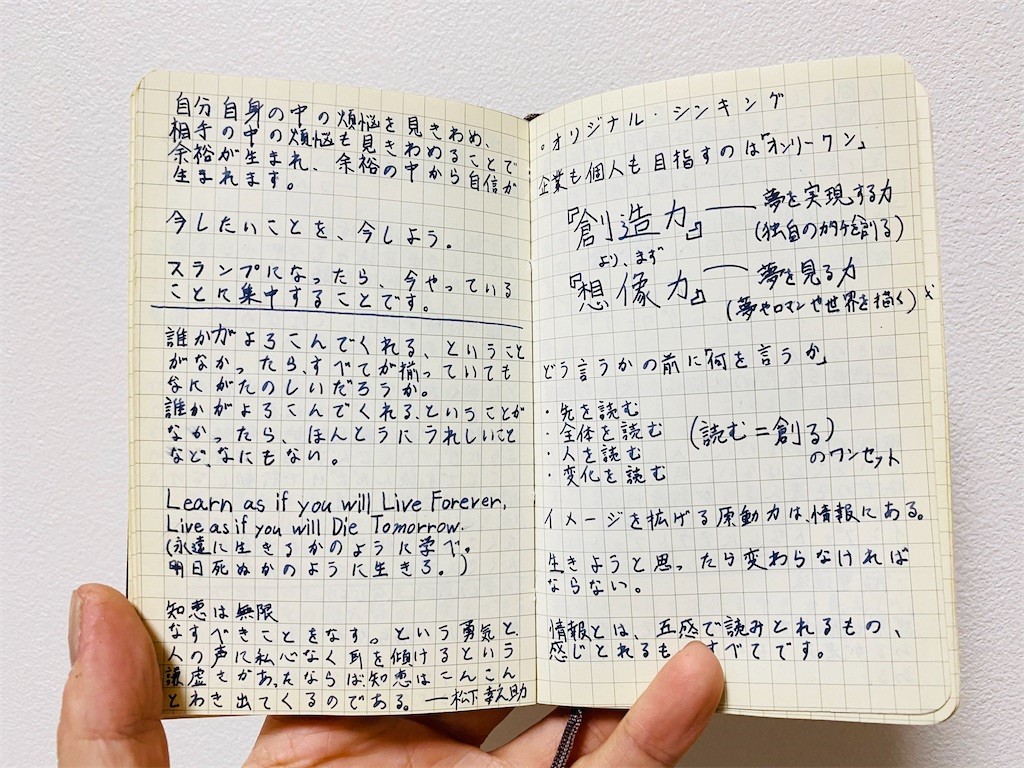 自分自身の中の煩悩を見きわめ、
相手の中の煩悩も見きわめることで
余裕が生まれ、余裕の中から自信が
生まれます。
今したいことを、今しよう。
スランプになったら、今やっている
ことに集中することです。
誰かがよろこんでくれる、ということ
がなかったら、すべてが揃っていても
なにがたのしいだろうか。
誰かがよろこんでくれる、ということが
なかったら、ほんとうにうれしいこと
など、なにもない。
Learn as if you will Live Forever,
Live as if you will Die Tomorrow.
(永遠に生きるかのように学べ。
明日死ぬかのように生きろ。)
知恵は無限
なすべきことをなす。という勇気と、
人の声に私心なく耳を傾けるという
謙虚さがあったならば知恵はこんこん
とわき出てくるのである。―松下幸之助
・オリジナル・シンキング
企業も個人も目指すのは「オンリーワン」
『創造力』―夢を実現する力
(独自のカタチを創る)
より、まず
『想像力』―夢を見る力
(夢やロマンや世界を描く)
どう言うかの前に「何を言うか」
・先を読む
・全体を読む
・人を読む
・変化を読む
(読む=創る)
のワンセット
イメージを拡げる原動力は、情報にある。
生きようと思ったら変わらなければ
ならない。
情報とは、五感で読みとれるもの、
感じとれるもの すべてです。